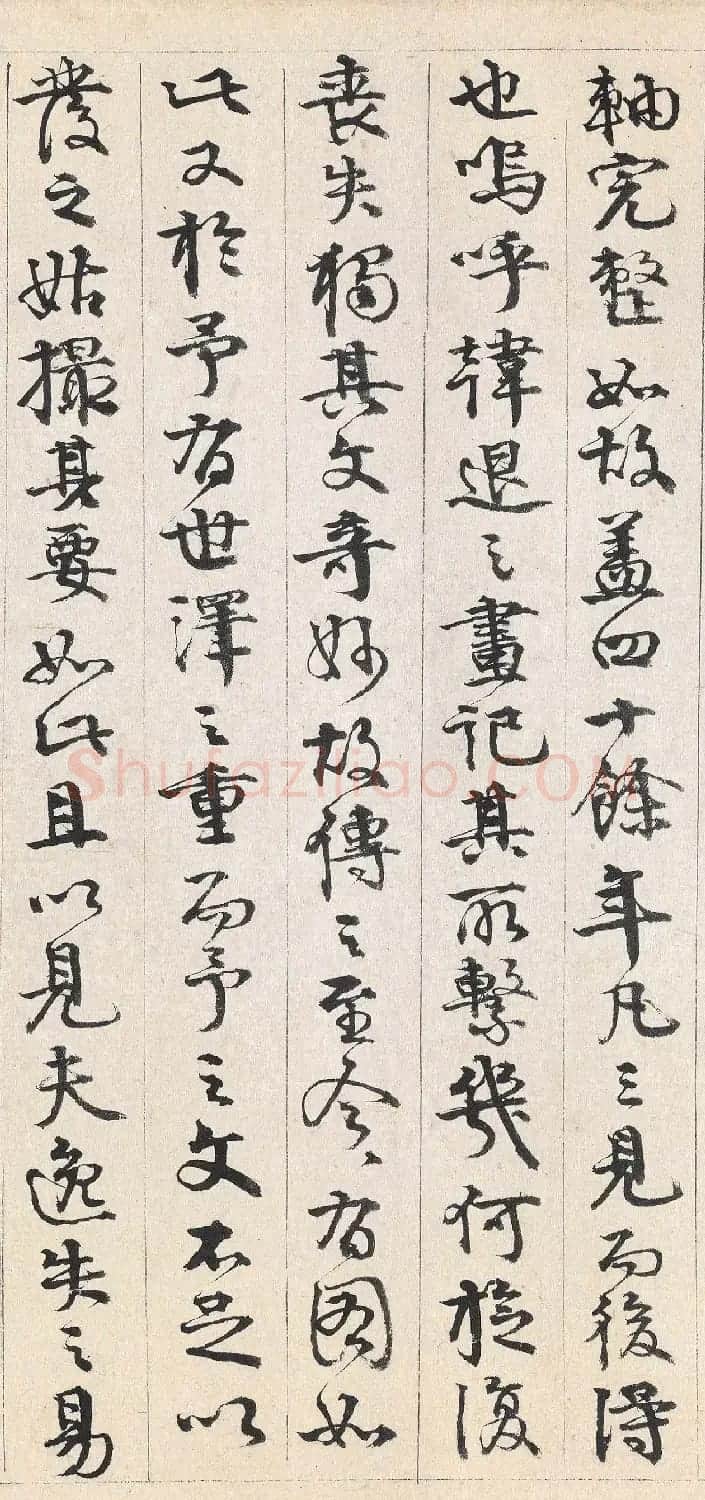 軸完整如故蓋四十餘年凡三見而後得
也嗚呼韓退之畫記其所繫幾何旋復
喪失獨其文奇妙故傳之至今今有图如
此又於予有世澤之重而予之文不足以
發之姑撮其要如此且以見夫逸失之易
Shufaziliao.COM